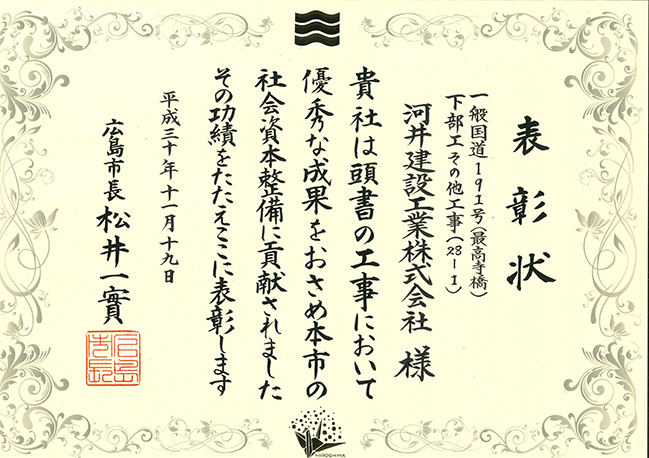 表彰状
一般国道191号(最高寺橋)
下部工その他工事(28-1)
河井建設工業株式会社 様
貴社は頭書の工事において
優秀な成果をおさめ本市の
社会資本整備に貢献されました
その功績をたたえここに表彰します
平成三十年十一月十九日
広島市長 松井一實
広島市長
HIROSHIMA